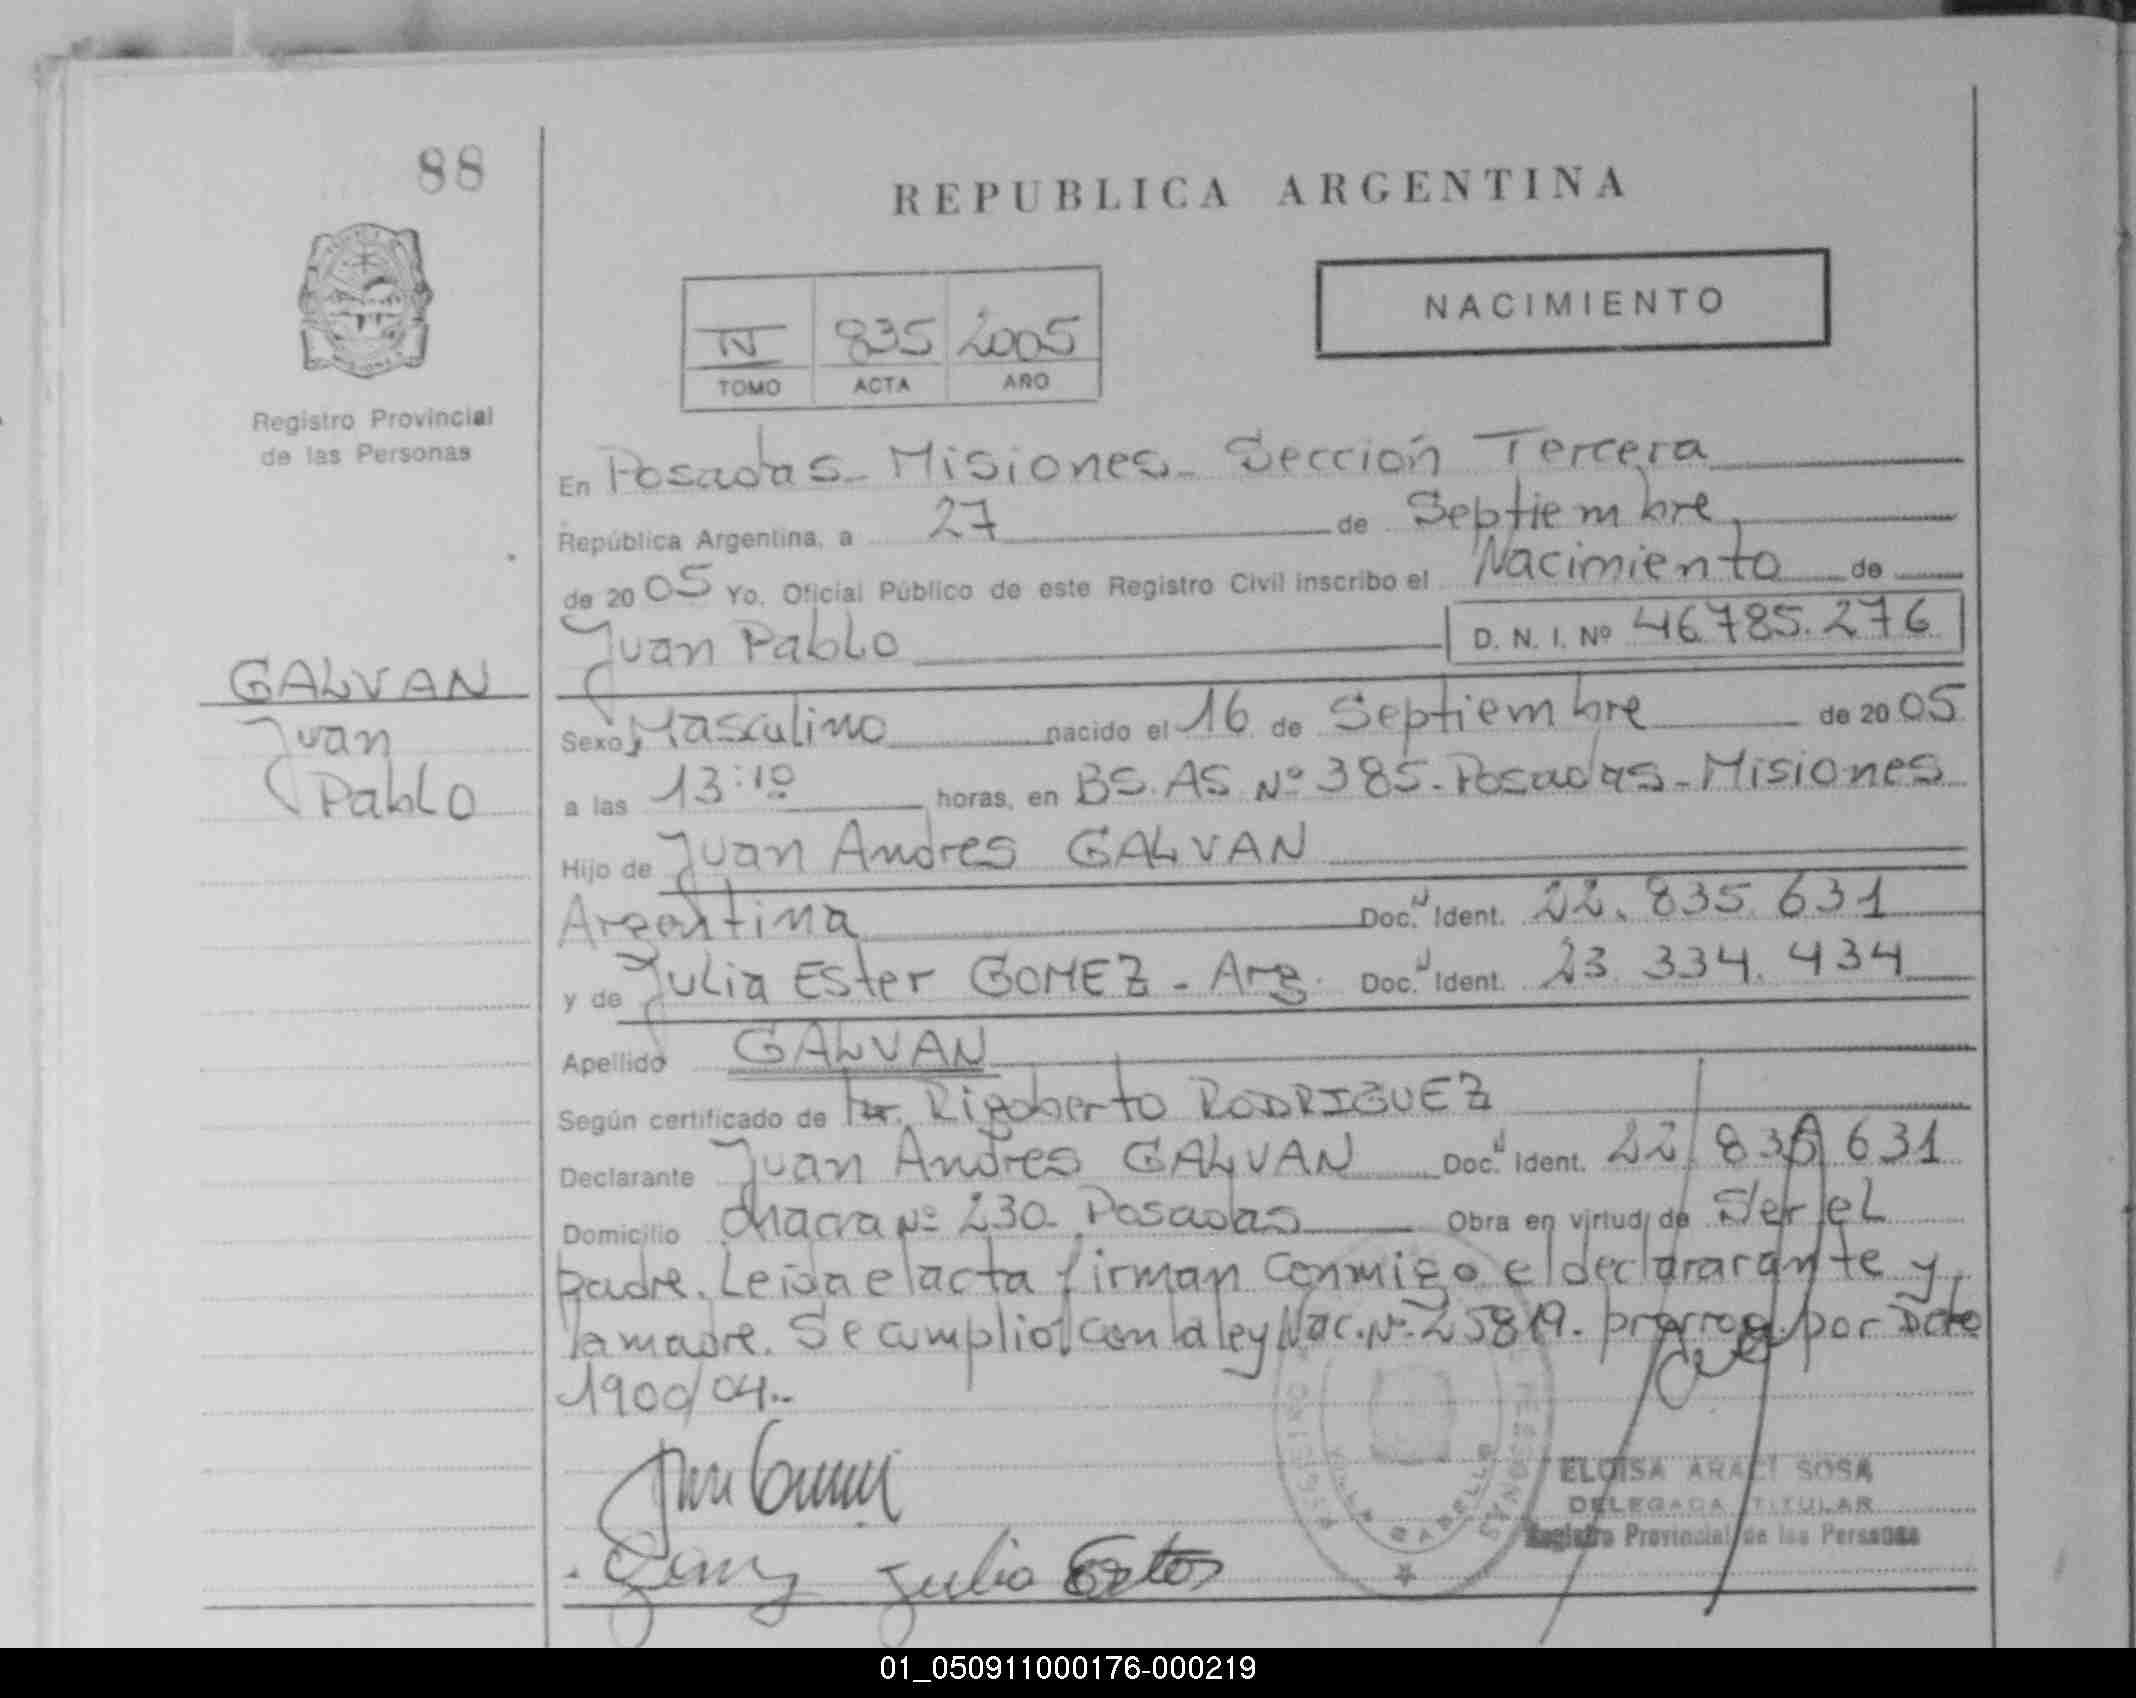 88
REPUBLICA ARGENTINA
NACIMIENTO
IV 835 2005
TOMO ACTA AÑO
Registro Provincial
de las Personas
En Posadas - Misiones - Sección Tercera
República Argentina, a 27 de Septiembre
de 2005 Yo, Oficial Público de este Registro Civil inscribo el Nacimiento de
Juan Pablo D. N. I. Nº 46.785.276
GALVAN
Juan
Pablo
Sexo Masculino nacido el 16 de Septiembre de 2005
a las 13:10 horas, en BS. AS. Nº 385 - Posadas - Misiones
Hijo de Juan Andres GALVAN
Argentina Doc. Ident. 22.835.631
y de Julia Ester GOMEZ - Arg. Doc. Ident. 23.334.434
Apellido GALVAN
Según certificado de Rigoberto RODRIGUEZ
Declarante Juan Andres GALVAN Doc. Ident. 22 835 631
Domicilio chacra Nº 230 - Posadas Obra en virtud de Ser el
padre. Leida el acta firman conmigo el declararante y
la madre. Se cumplió con la ley Nac. Nº 25819. prorrog. por Dcto
1900/04..
Julia Ester
VILLA CABELLO
ELOISA ARACI SOSA
DELEGADA TITULAR
Registro Provincial de las Personas
01_050911000176-000219